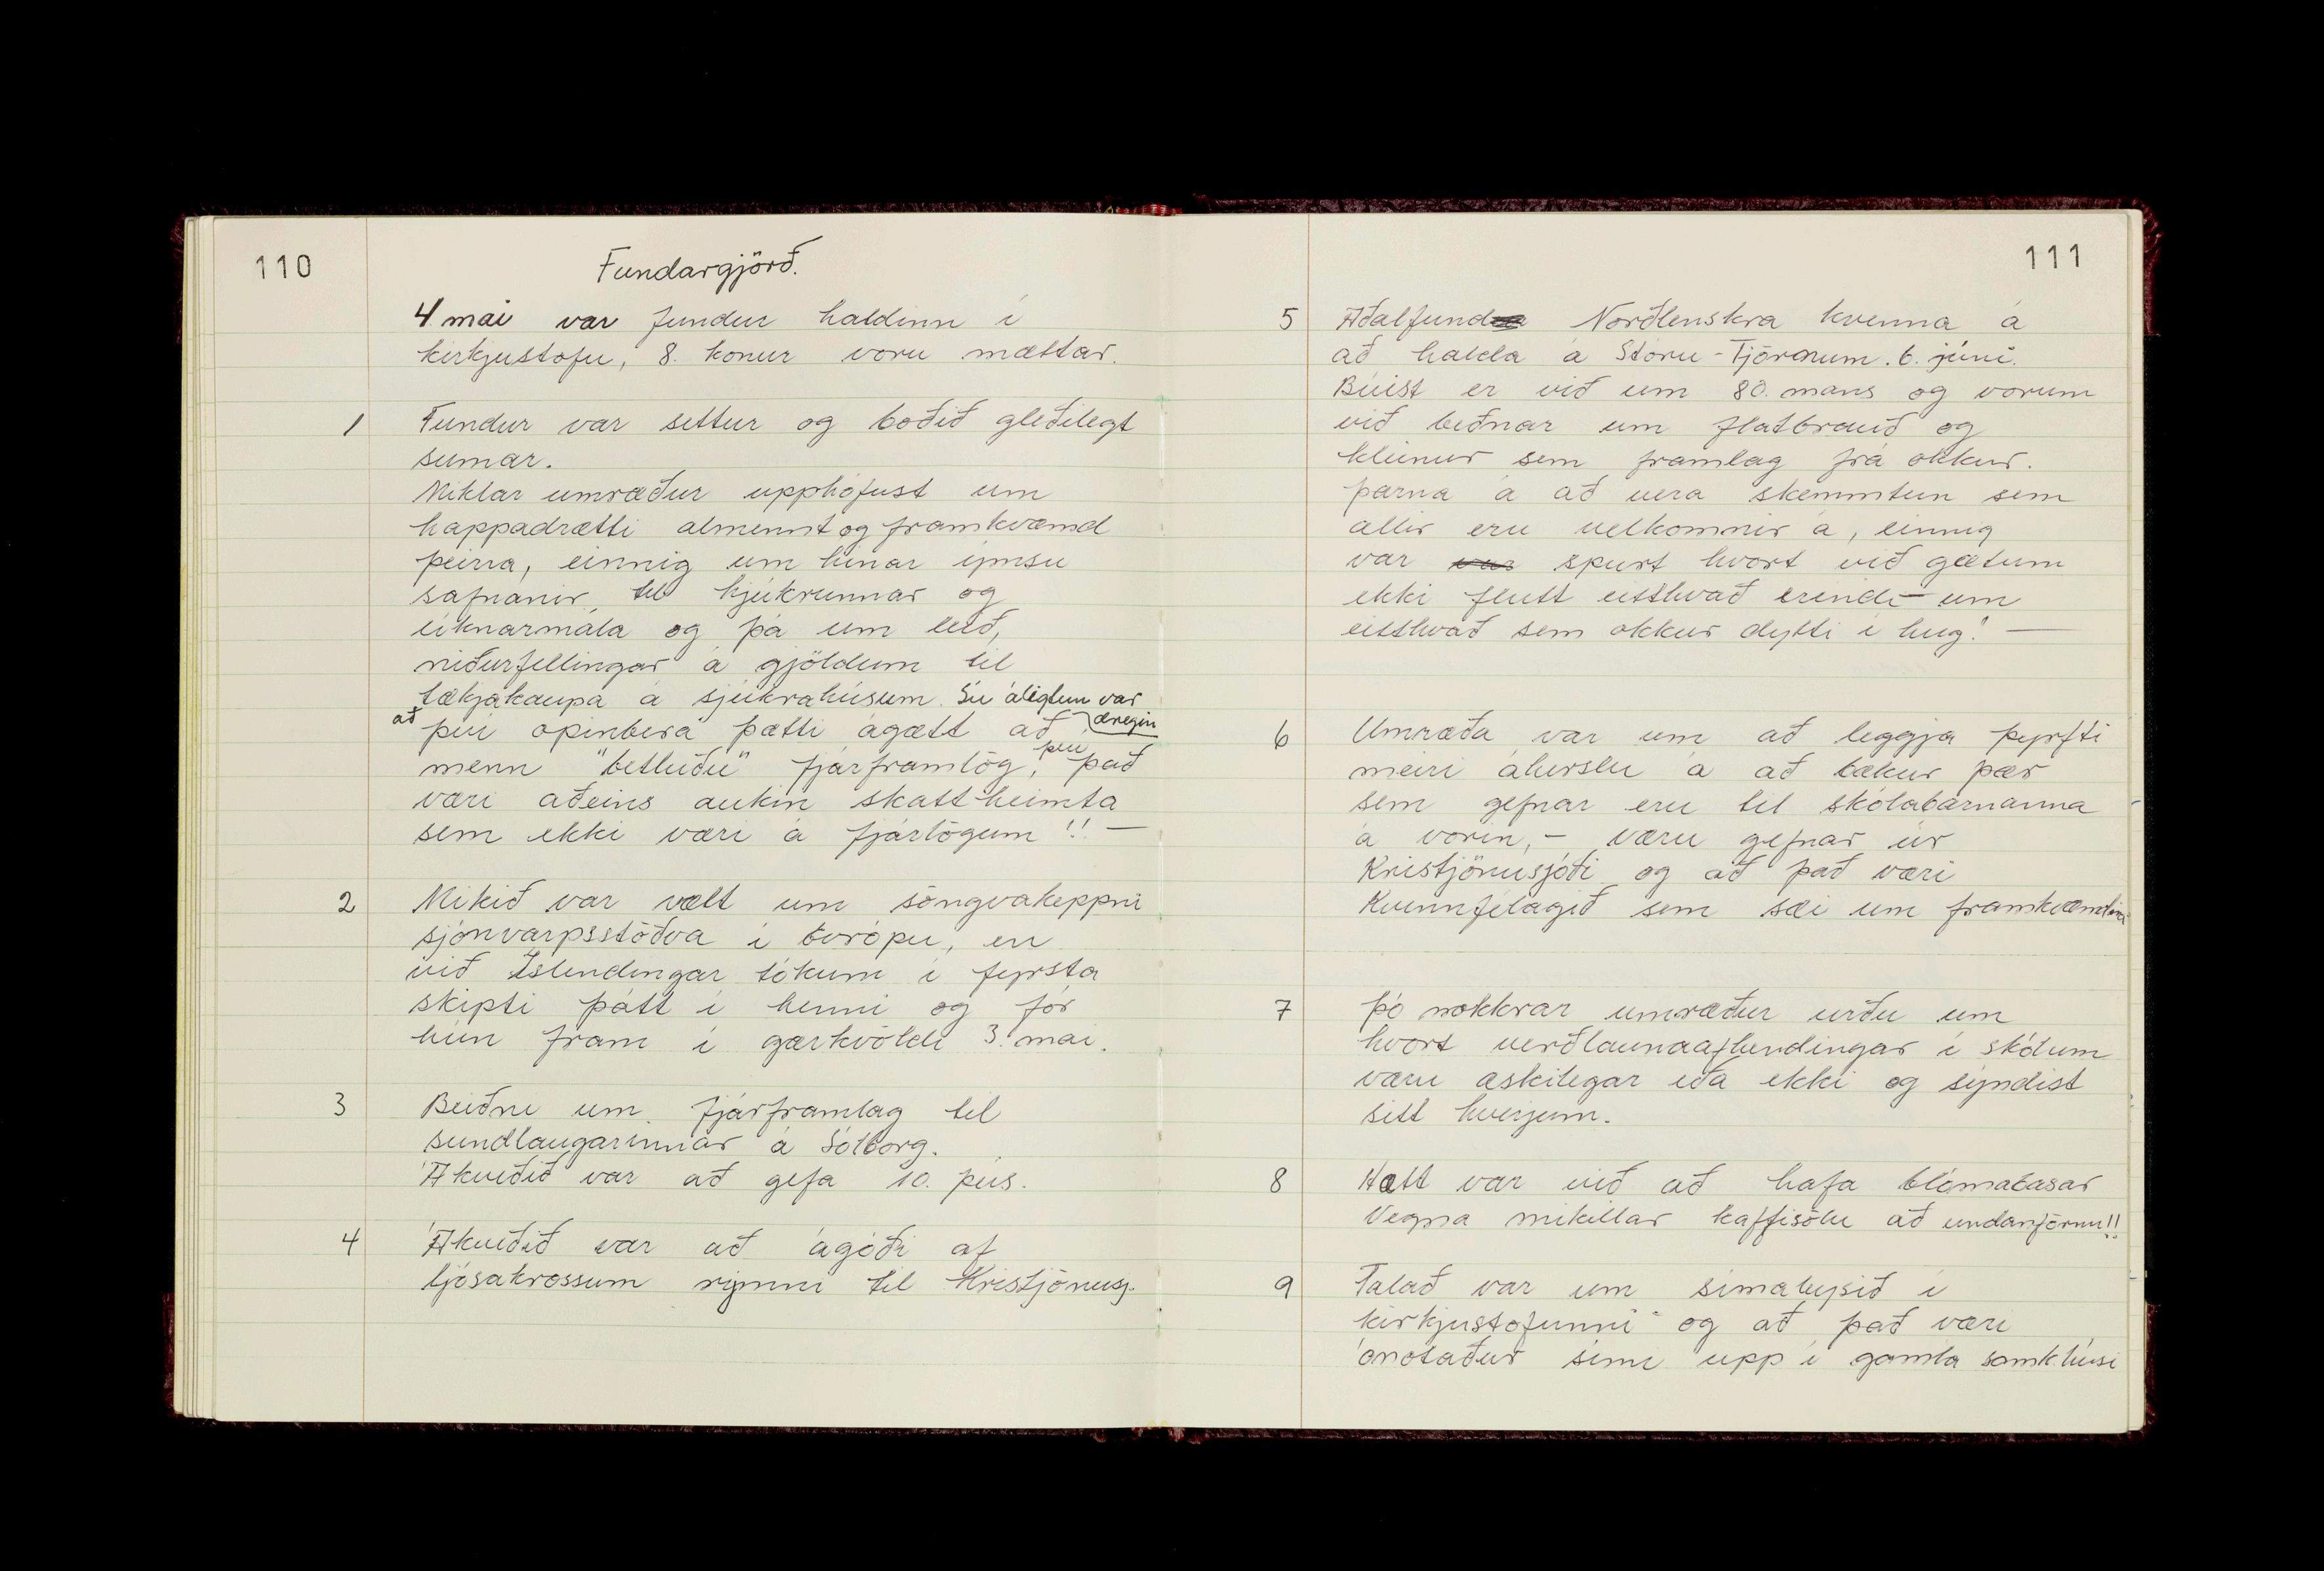 110
Fundargjörð.
4 mai var fundur haldinn í
kirkjustofu, 8. konur voru mættar.
1 Fundur var settur og boðið gleðilegt
sumar.
Miklar umræður upphófust um
happadrætti almennt og framkvæmd
þeirra, einnig um hinar ýmsu
safnanir til hjúkrunnar og
líknarmála og þá um leið,
niðurfellingar á gjöldum til
tækjakaupa á sjúkrahúsum. Sú áligtun var
dregin
að því opinbera þætti ágætt að
menn "betluðu" fjárframlög, því það
væri aðeins aukin skatt-heimta
sem ekki væri á fjárlögum!! —
2 Mikið var rætt um söngvakeppni
sjónvarpsstöðva í Evrópu, en
við Íslendingar tókum í fyrsta
skipti þátt í henni og fór
hún fram í gærkvöldi 3. mai.
3 Beiðni um fjárframlag til
sundlaugarinnar á Sólborg.
Ákveðið var að gefa 10. þús.
4 Ákveðið var að ágóði af
ljósakrossum rynni til Kristjönusj.
111
5 Aðalfund Norðlenskra kvenna á
að halda á Stóru-Tjörnum. 6. júní.
Búist er við um 80. mans og vorum
við beðnar um flatbrauð og
kleinur sem framlag frá okkur.
þarna á að vera skemmtun sem
allir eru velkomnir á, einnig
var var spurt hvort við gætum
ekki flutt eitthvað erindi um
eitthvað sem okkur dytti í hug! —
6 Umræða var um að leggja þyrfti
meiri áherslu á að bækur þær
sem gefnar eru til skólabarnanna
á vorin, – væru gefnar úr
Kristjönusjóði og að það væri
Kvennfélagið sem sæi um framkvæmdina
7 Þó nokkrar umræður urðu um
hvort verðlaunaafhendingar í skólum
væru æskilegar eða ekki og sýndist
sitt hverjum.
8 Hætt var við að hafa blómabasar
Vegna mikillar kaffisölu að undanförnu!!
9 Talað var um símaleysið í
kirkjustofunni og að það væri
ónotaður sími upp í gamla samk.húsi